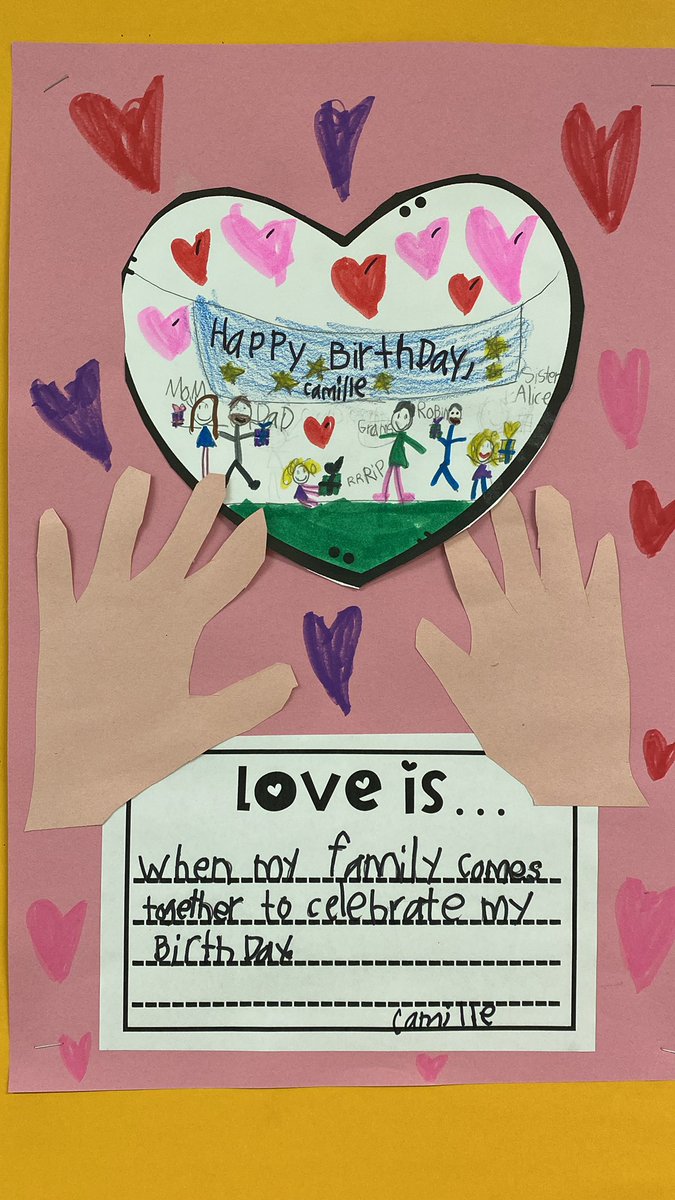 Happy BirthDay,
camille
Mom
DaD
Sister
Alice
Robin
RRRiP
Love is...
when my family comes
together to celebrate my
BirthDay.
camille